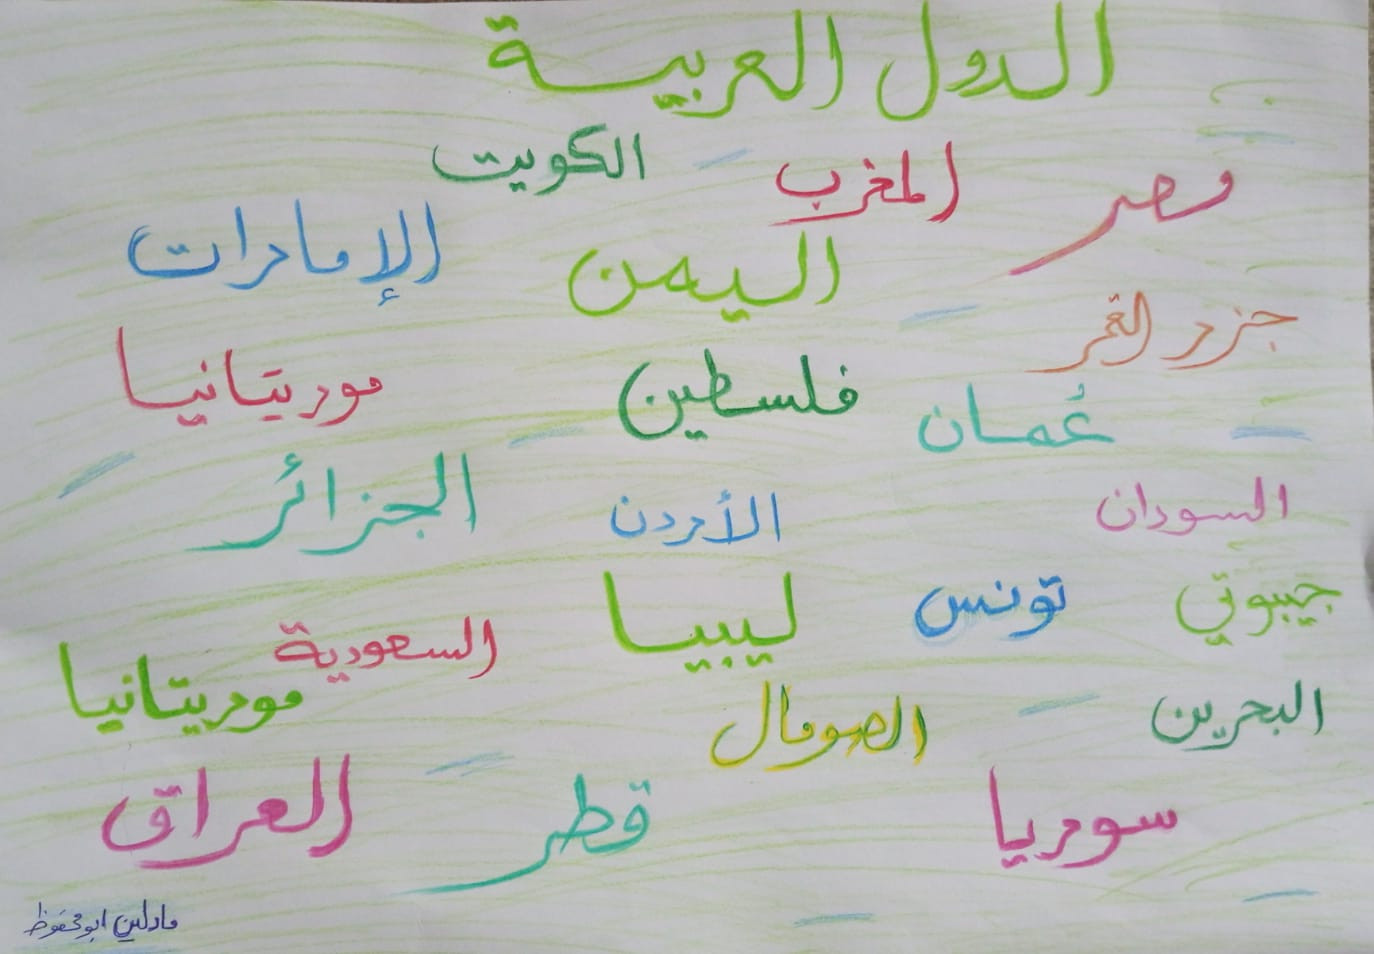 الدول العربية
الكويت
المغرب
مصر
الإمارات
اليمن
جزر القمر
موريتانيا
فلسطين
عُمان
الجزائر
الأردن
السودان
ليبيا
تونس
جيبوتي
السعودية
موريتانيا
الصومال
البحرين
العراق
قطر
سوريا
مادلين ابومحفوظ